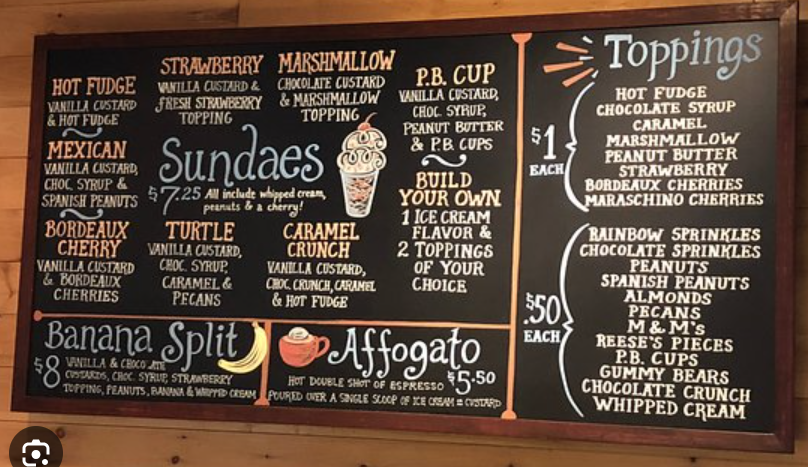 HOT FUDGE
VANILLA CUSTARD
& HOT FUDGE
STRAWBERRY
VANILLA CUSTARD &
FRESH STRAWBERRY
TOPPING
MARSHMALLOW
CHOCOLATE CUSTARD
& MARSHMALLOW
TOPPING
P.B. CUP
VANILLA CUSTARD,
CHOC. SYRUP,
PEANUT BUTTER
& P.B. CUPS
MEXICAN
VANILLA CUSTARD,
CHOC. SYRUP &
SPANISH PEANUTS
Sundaes
$7.25 All include whipped cream,
peanuts & a cherry!
BUILD
YOUR OWN
1 ICE CREAM
FLAVOR &
2 TOPPINGS
OF YOUR
CHOICE
BORDEAUX
CHERRY
VANILLA CUSTARD
& BORDEAUX
CHERRIES
TURTLE
VANILLA CUSTARD,
CHOC. SYRUP,
CARAMEL &
PECANS
CARAMEL
CRUNCH
VANILLA CUSTARD,
CHOC. CRUNCH, CARAMEL
& HOT FUDGE
Banana Split
$8 VANILLA & CHOCOLATE
CUSTARDS, CHOC. SYRUP, STRAWBERRY
TOPPING, PEANUTS, BANANA & WHIPPED CREAM
Affogato
$5.50
HOT DOUBLE SHOT OF ESPRESSO
POURED OVER A SINGLE SCOOP OF ICE CREAM CUSTARD
Toppings
$1
EACH
HOT FUDGE
CHOCOLATE SYRUP
CARAMEL
MARSHMALLOW
PEANUT BUTTER
STRAWBERRY
BORDEAUX CHERRIES
MARASCHINO CHERRIES
.50
EACH
RAINBOW SPRINKLES
CHOCOLATE SPRINKLES
PEANUTS
SPANISH PEANUTS
ALMONDS
PECANS
M&M's
REESE'S PIECES
P.B. CUPS
GUMMY BEARS
CHOCOLATE CRUNCH
WHIPPED CREAM